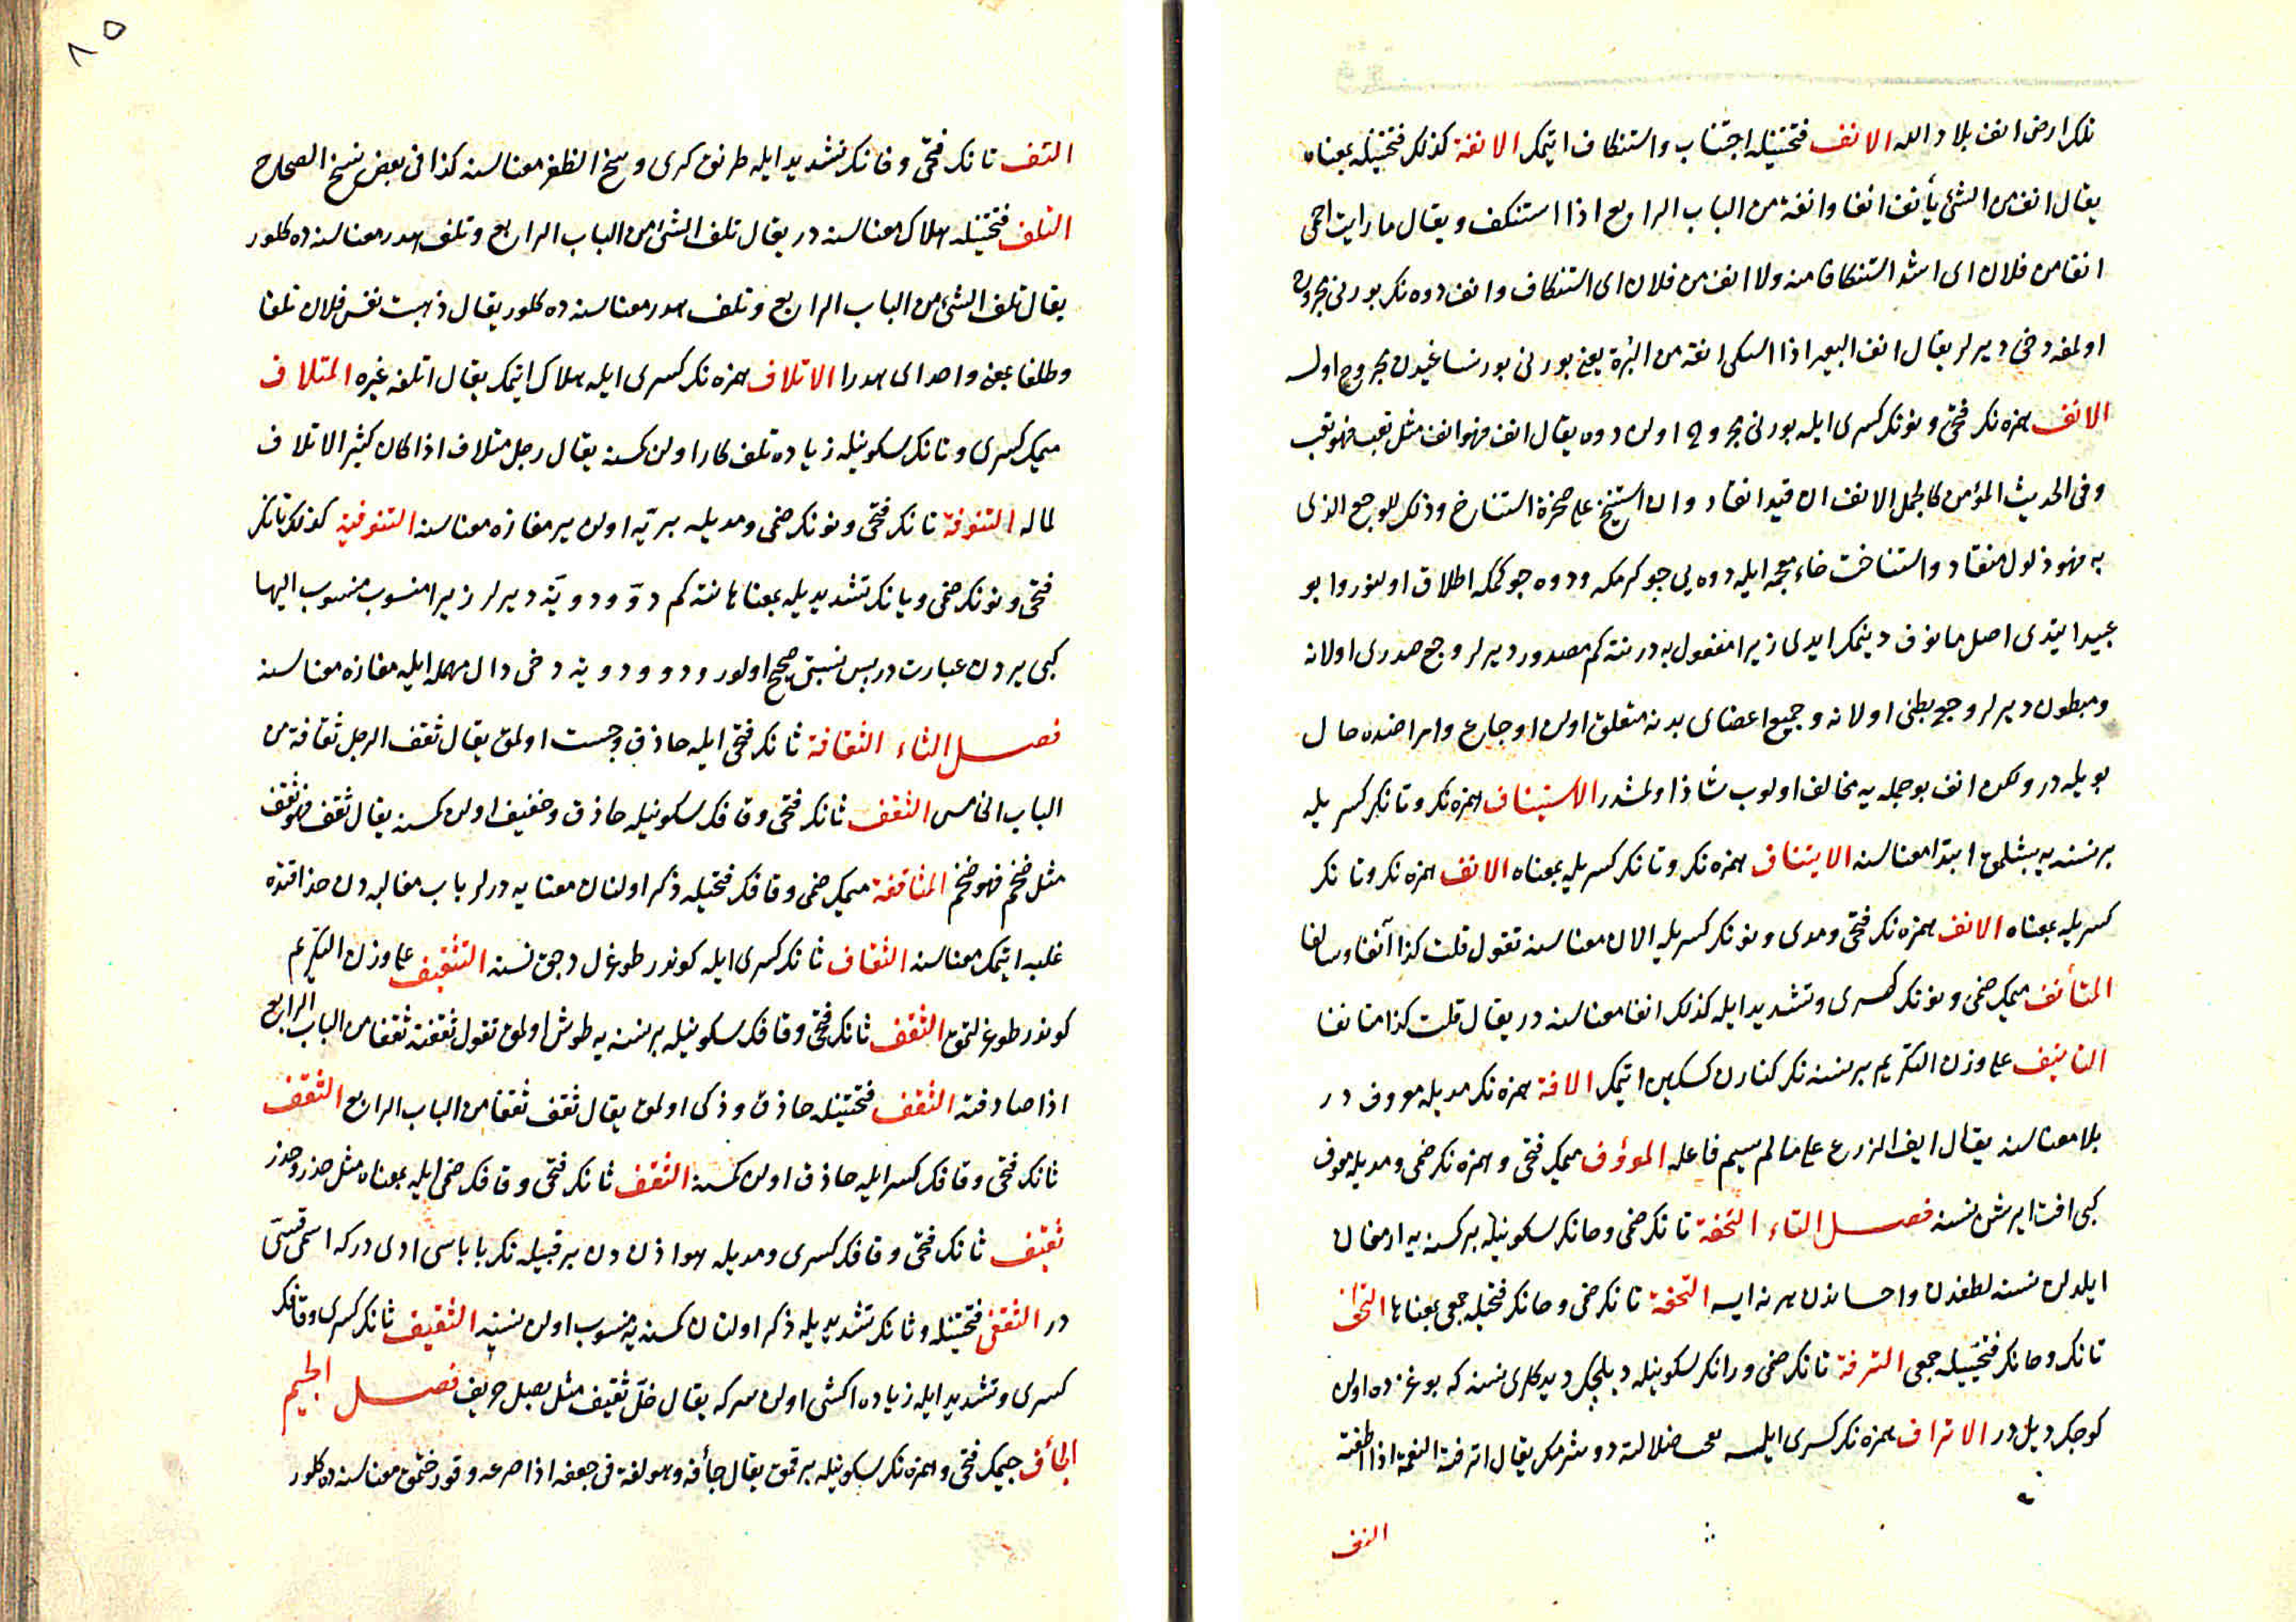 تلك ارض انف بلاد الله الانف فتحتيله اجتناب و استنكاف ايتمك الانفة كذلك فتحتيله بمعناه
يقال انف من الشئ يأنف انفا و انفة من الباب الرابع اذا استنكف و يقال ما رايت احمى
انفا من فلان اى اشد استنكافا منه ولا انف من فلان اى استنكاف و انف دوه نك بورنى مجروح
اولمغه دخى ديرلر يقال انف البعير اذا اشتكى انفه من البرة يعنى بورنى بورنساغيدن مجروح اولسه
الانف همزه نك فتحى و نونك كسرى ايله بورنى مجروح اولن دوه يقال انف فهو انف مثل تعب فهو تعب
و فى الحديث المؤمن كالجمل الانف ان قيد انقاد و ان استنيخ على صخرة استناخ و ذلك للوجع الذى
به فهو ذلول منقاد و استناخت خاء معجمه ايله دوه يى چوكرمكه و دوه چوكمكه اطلاق اولنور و ابو
عبيد ايتدى اصل مانوف دينمك ايدى زيرا مفعول به در نته كم مصدور ديرلر وجع صدرى اولانه
و مبطون ديرلر وجع بطنى اولانه و جميع اعضاى بدنه متعلق اولن اوجاع و امراضده حال
بويله در و لكن انف بو جمله يه مخالف اولوب شاذ اولمشدر الاستيناف همزه نك و تانك كسريله
بر نسنه يه بشلمق ابتدا معناسنه الايتناف همزه نك و تانك كسريله بمعناه الانف همزه نك و تانك
كسريله بمعناه الانف همزه نك فتحى و مدى و نونك كسريله الان معناسنه تقول قلت كذا آنفا و سالفا
المتأنف ميمك ضمى و نونك كسرى و تشديد ايله كذلك انفا معناسنه در يقال قلت كذا متانفا
التانيف على وزن التكريم بر نسنه نك كنارن كسكين ايتمك الافة همزه نك مديله معروف در
بلا معناسنه يقال ايف الزرع على ما لم يسم فاعله المووف ميمك فتحى و همزه نك ضمى و مديله معوف
كبى افت ايرشن نسنه فصل التاء التحفة تانك ضمى و حانك سكونيله بر كسنه يه ارمغان
ايلدن نسنه لطفدن و احساندن هر نه ايسه التحفة تانك ضمى و حانك فتحيله جمعى بمعناها التحف
تانك و حانك فتحتيله جمعى الترفة تانك ضمى و رانك سكونيله ديلجك ديدكلرى نسنه كه بوغزده اولن
كوجك ديل در الاتراف همزه نك كسرى ايله دوشرمك يقال اترفته النعمة اذا اطغته
التف
٨٥
التف تانك فتحى و فانك تشديد ايله طرنق كرى وسخ الظفر معناسنه كذا فى بعض نسخ الصحاح
التلف فتحتيله هلاك معناسنه در يقال تلف الشئ من الباب الرابع و تلف هدر معناسنه ده كلور
يقال تلف الشئ من الباب الرابع و تلف هدر معناسنه ده كلور يقال ذهبت نفس فلان تلفا
و طلفا بمعنى واحد اى هدرا الاتلاف همزه نك كسرى ايله هلاك ايتمك يقال اتلفه غيره المتلاف
ميمك كسرى و تانك سكونيله زياده تلف كار اولن كسنه يقال رجل متلاف اذا كان كثير الاتلاف
لماله التنوفة تانك فتحى و نونك ضمى و مديله بريّه اولن ير مفازه معناسنه التنوفية كذلك تانك
فتحى و نونك ضمى و يانك تشديديله بمعناها نته كم دوّ و دويّة ديرلر زيرا منسوب منسوب اليها
كبى يردن عبارت در پس نسبتى صحيح اولور و دو و دوية دخى دال مهمله ايله مفازه معناسنه
فصل الثاء الثقافة ثانك فتحى ايله حاذق و چست اولمق يقال ثقف الرجل ثقافة من
الباب الخامس الثقف ثانك فتحى و قافك سكونيله حاذق و خفيف اولن كسنه يقال ثقف فهو ثقف
مثل ضخم فهو ضخم المثاقفة ميمك ضمى و قافك فتحيله ذكر اولنان معنايه درلر باب مغالبه دن حذاقتده
غلبه ايتمك معناسنه الثقاف ثانك كسرى ايله كوندر طوغرلدجق نسنه التثقيف على وزن التكريم
كوندر طوغرلتمق الثقف ثانك فتحى و قافك سكونيله بر نسنه يه طوش اولمق تقول ثقفته ثقفا من الباب الرابع
اذا صادفته الثقف فتحتيله حاذق و ذكى اولمق يقال ثقف ثقفا من الباب الرابع الثقف
ثانك فتحى و قافك كسر ايله حاذق اولن كسنه الثقف ثانك فتحى و قافك ضمى ايله بمعناه مثل حذر و حذر
ثقيف ثانك فتحى و قافك كسرى و مديله هوازن دن بر قبيله نك باباسى ادى در كه اسمى قسىّ
در الثقفى فتحتيله و ثانك تشديديله ذكر اولنان كسنه يه منسوب اولن نسنه الثقيف ثانك كسرى و قافك
كسرى و تشديد ايله زياده اكشى اولن سركه يقال خلّ ثقيف مثل بصل حريف فصل الجيم
الجأف جيمك فتحى و همزه نك سكونيله برقمق يقال جأفه و هو لغة فى جعفه اذا صرعه و قورخمق معناسنه ده كلور